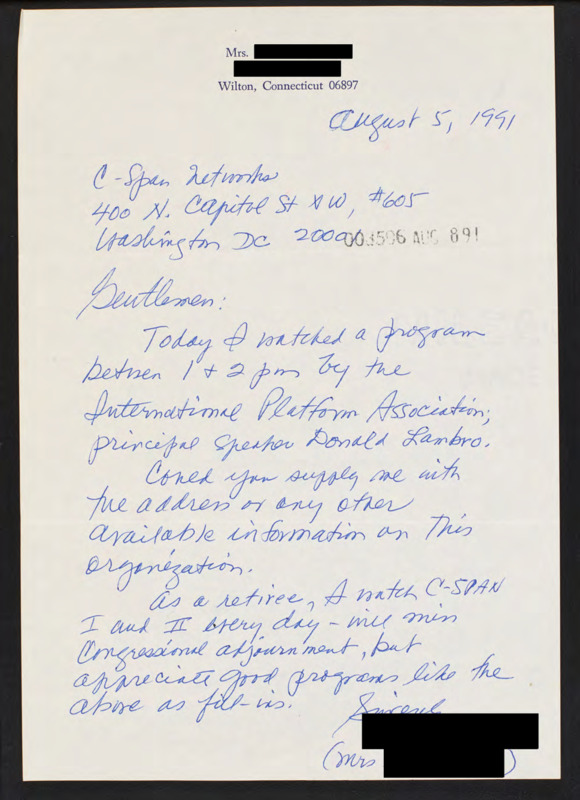 Mrs.
Wilton, Connecticut 06897
August 5, 1991
C-Span Networks
400 N. Capitol St NW, #605
Washington DC 2000
003506 AUG 8 91
Gentlemen:
Today I watched a program
between 1 + 2 pm by the
International Platform Association;
principal speaker Donald Lambro.
Could you supply me with
the address or any other
available information on this
organization.
As a retiree, I watch C-SPAN
I and II every day - will miss
Congressional adjournment, but
appreciate good programs like the
above as fill-ins.
(Mrs )